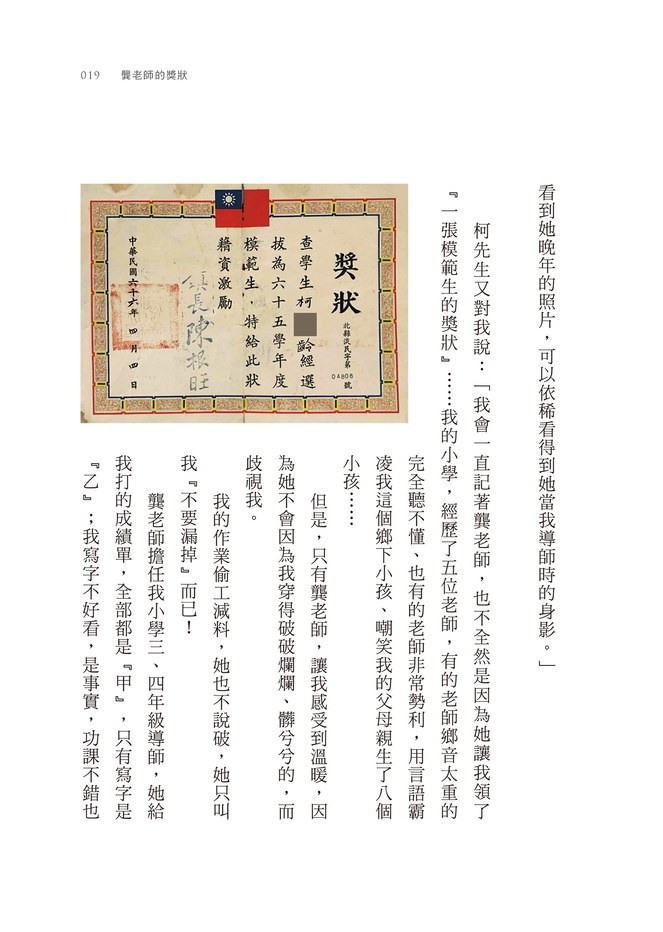 019 龔老師的獎狀
看到她晚年的照片，可以依稀看得到她當我導師時的身影。」
柯先生又對我說：「我會一直記著龔老師，也不全然是因為她讓我領了
『一張模範生的獎狀』……我的小學，經歷了五位老師，有的老師鄉音太重的
完全聽不懂、也有的老師非常勢利，用言語霸
凌我這個鄉下小孩、嘲笑我的父母親生了八個
小孩……
但是，只有龔老師，讓我感受到溫暖，因
為她不會因為我穿得破破爛爛、髒兮兮的，而
歧視我。
我的作業偷工減料，她也不說破，她只叫
我『不要漏掉』而已！
龔老師擔任我小學三、四年級導師，她給
我打的成績單，全部都是『甲』，只有寫字是
『乙』；我寫字不好看，是事實，功課不錯也
獎狀
北縣淡民字第
04808 號
查學生柯 齡經選
拔為六十五學年度
模範生，特給此狀
藉資激勵
鎮長陳根旺
中華民國六十六年 四月 四日